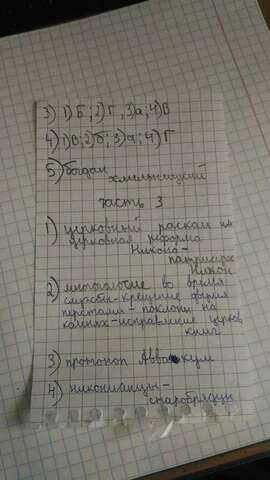 3) 1) Б; 2) Г, 3) а; 4) В
4) 1) В; 2) б; 3) а; 4) Г
5) богдан
хмельницкий
часть 3
1) церковный раскол или
церковная реформа
Никона -
патриарх
Никон
2) многоголосие во время
службы - крещение двумя
перстами - поклоны на
исправление церков
книг
3) протопоп Аввакум
4) никонианцы -
старобрядцы